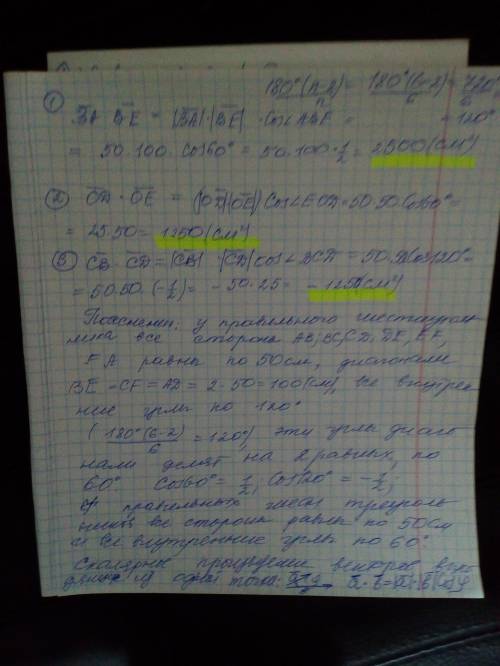 ① 180°(n-2)/n = 180°(6-2)/6 = 720°/6 =
BA · BE = |BA|·|BE| · cos∠ABE = = 120°
= 50·100·cos60° = 50·100·1/2 = 2500(см²)
② OD · OE = |OD||OE| cos∠EOD = 50·50·cos60° =
= 25·50 = 1250(см²)
③ CB · CD = |CB|·|CD| cos∠BCD = 50·50cos120° =
= 50·50·(-1/2) = -50·25 = -1250(см²)
Пояснения: у правильного шестиуголь
ника все стороны AB, BC, CD, DE, EF,
FA равны по 50см, диагонали
BE = CF = AD = 2·50 = 100(см), все внутрен
ние углы по 120°
(180°(6-2)/6 = 120°), эти углы диаго
нали делят на 2 равных, по
60°. cos60° = 1/2, cos120° = -1/2;
правильных треуголь
ников все стороны равны по 50см
и все внутренние углы по 60°
Скалярное произведение векторов выхо
дящих из одной точки: a · b = |a|·|b|cosφ